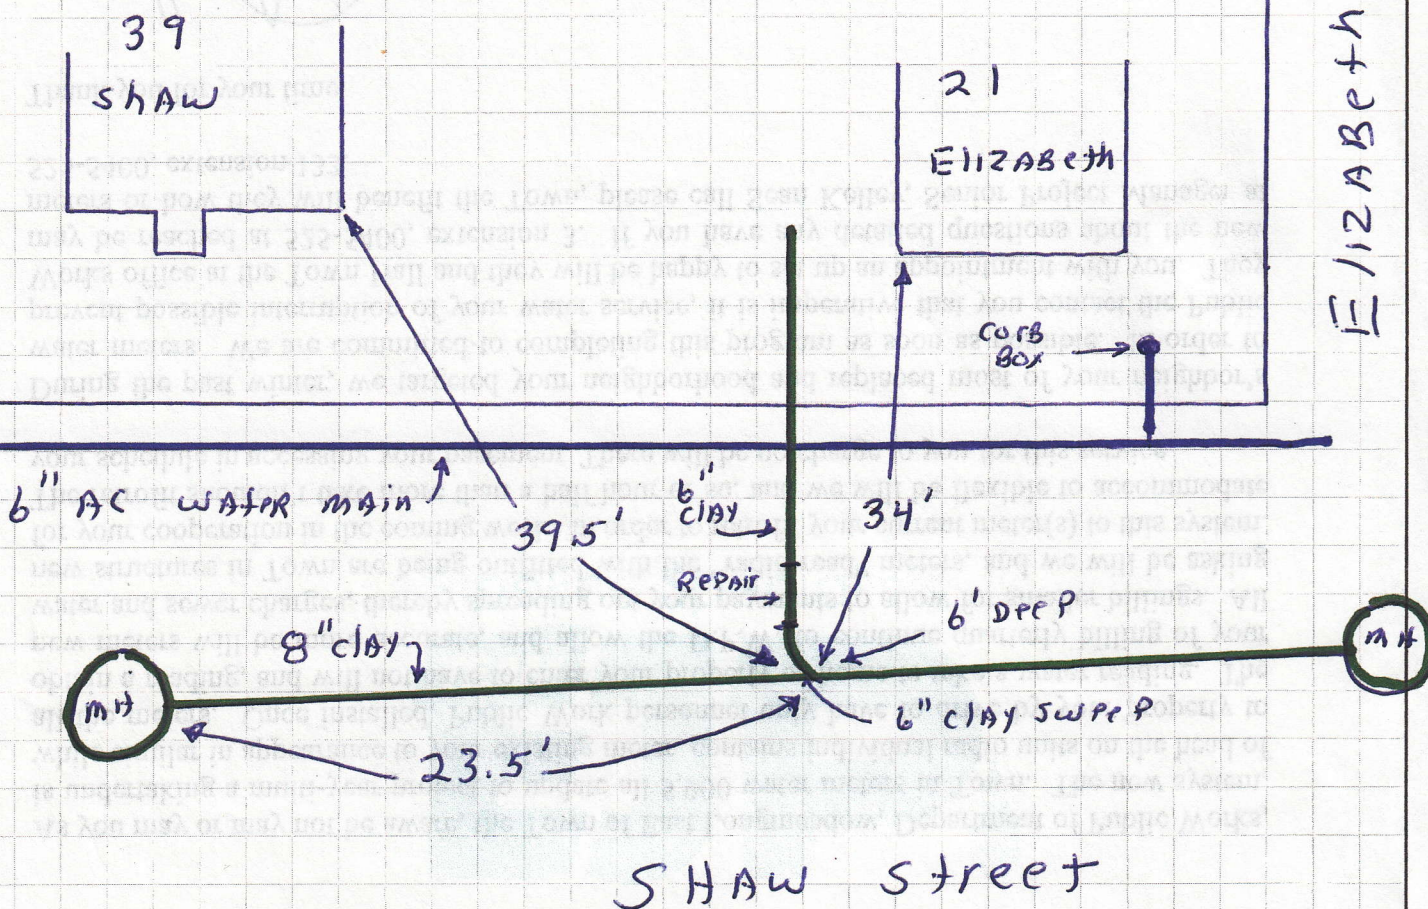 39
ShAW
21
ElizABeth
ElizABeth
Curb
Box
6" AC WAter mAin
39.5'
6"
ClAy
34'
RepAir
6' Deep
8" ClAy
MH
MH
6" ClAy Sweep
23.5'
SHAW Street